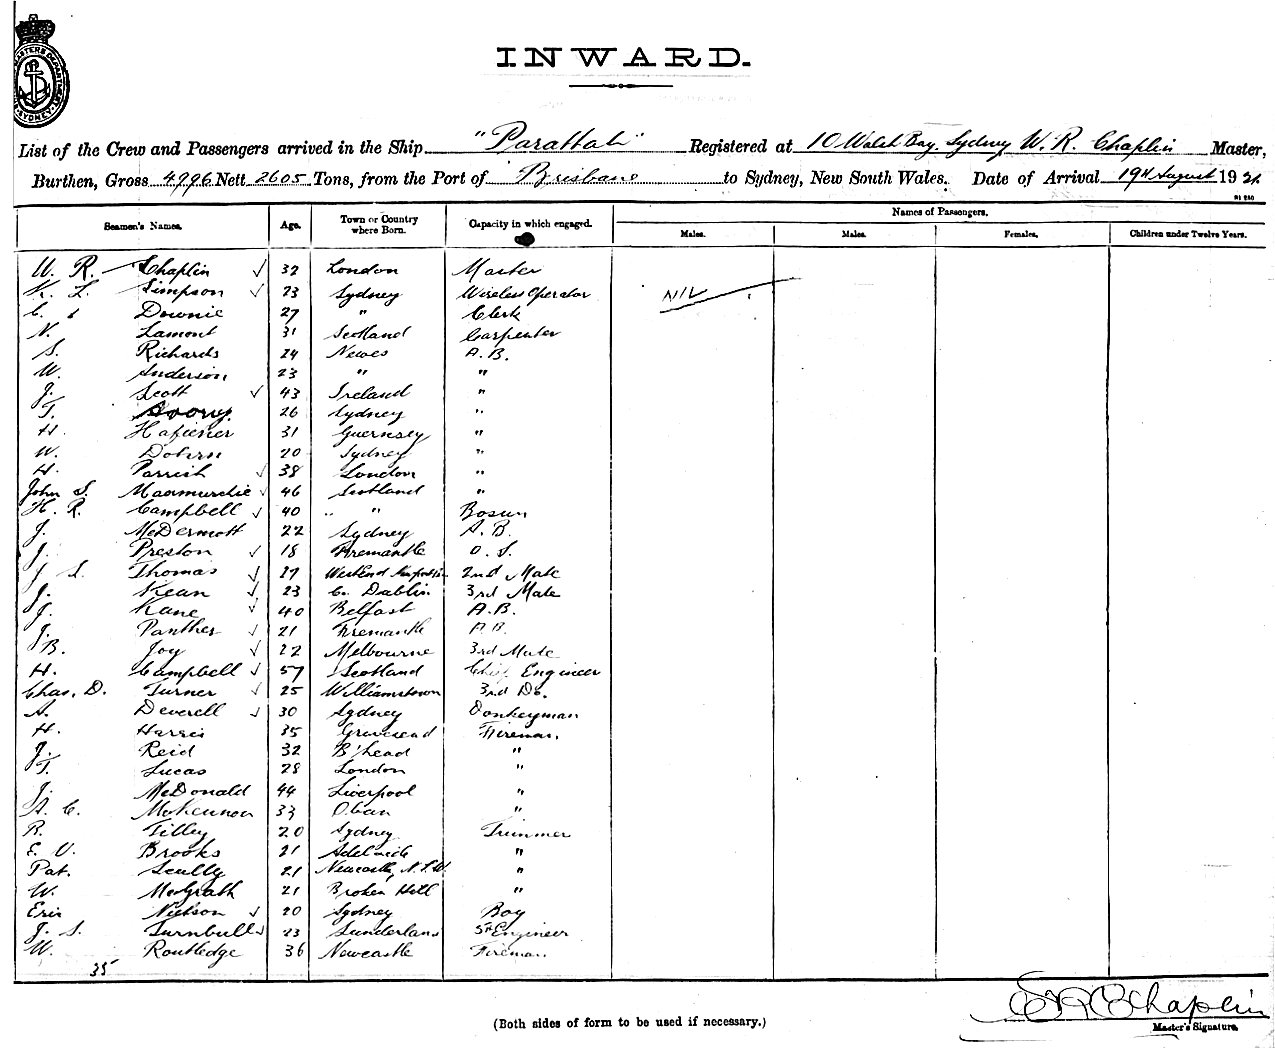 INWARD.
List of the Crew and Passengers arrived in the Ship "Parattah" Registered at 10 Walsh Bay, Sydney W. R. Chaplin Master,
Burthen, Gross 4996 Nett 2605 Tons, from the Port of Brisbane to Sydney, New South Wales. Date of Arrival 19th August 192
Seamen's Names. Age. Town or Country where Born. Capacity in which engaged. Names of Passengers.
Males. Males. Females. Children under Twelve Years.
W. R. Chaplin ✓ 32 London Master
L. Simpson ✓ 23 Sydney Wireless Operator NIL
C. Downie 27 " Clerk
N. Lamont 31 Scotland Carpenter
S. Richards 24 A.B.
W. Anderson 23 " "
J. Scott ✓ 43 Ireland "
T. 26 Sydney "
H. 31 Guernsey "
W. 20 Sydney "
H. Parrish ✓ 38 London "
John S. ✓ 46 Scotland "
H. R. Campbell ✓ 40 " " Bosun
J. McDermott 22 Sydney A.B.
J. Preston ✓ 18 Fremantle O.S.
J L. Thomas ✓ 27 West End 2nd Mate
J. Kean ✓ 23 Co. Dublin 3rd Mate
J. Kane ✓ 40 Belfast A.B.
J. Panther ✓ 21 Fremantle A.B.
B. Joy ✓ 22 Melbourne 3rd Mate
H. Campbell ✓ 57 Scotland Chief Engineer
Chas. D. Turner ✓ 25 Williamstown 3rd Do.
A. Deverell ✓ 30 Sydney Donkeyman
H. Harris 35 Gravesend Fireman.
J. Reid 32 B'head "
T. Lucas 28 London "
J. McDonald 44 Liverpool "
A. C. McKennon 33 Oban "
R. Tilley 20 Sydney Trimmer
E. V. Brooks 21 Adelaide "
Pat. Scully 21 Newcastle, N.S.W. "
W. McGrath 21 Broken Hill "
Eric Nielson ✓ 20 Sydney Boy
J. S. Turnbull ✓ 23 Sunderland 5th Engineer
W. Routledge 36 Newcastle Fireman
35
Chaplin
(Both sides of form to be used if necessary.)
Master's Signature.